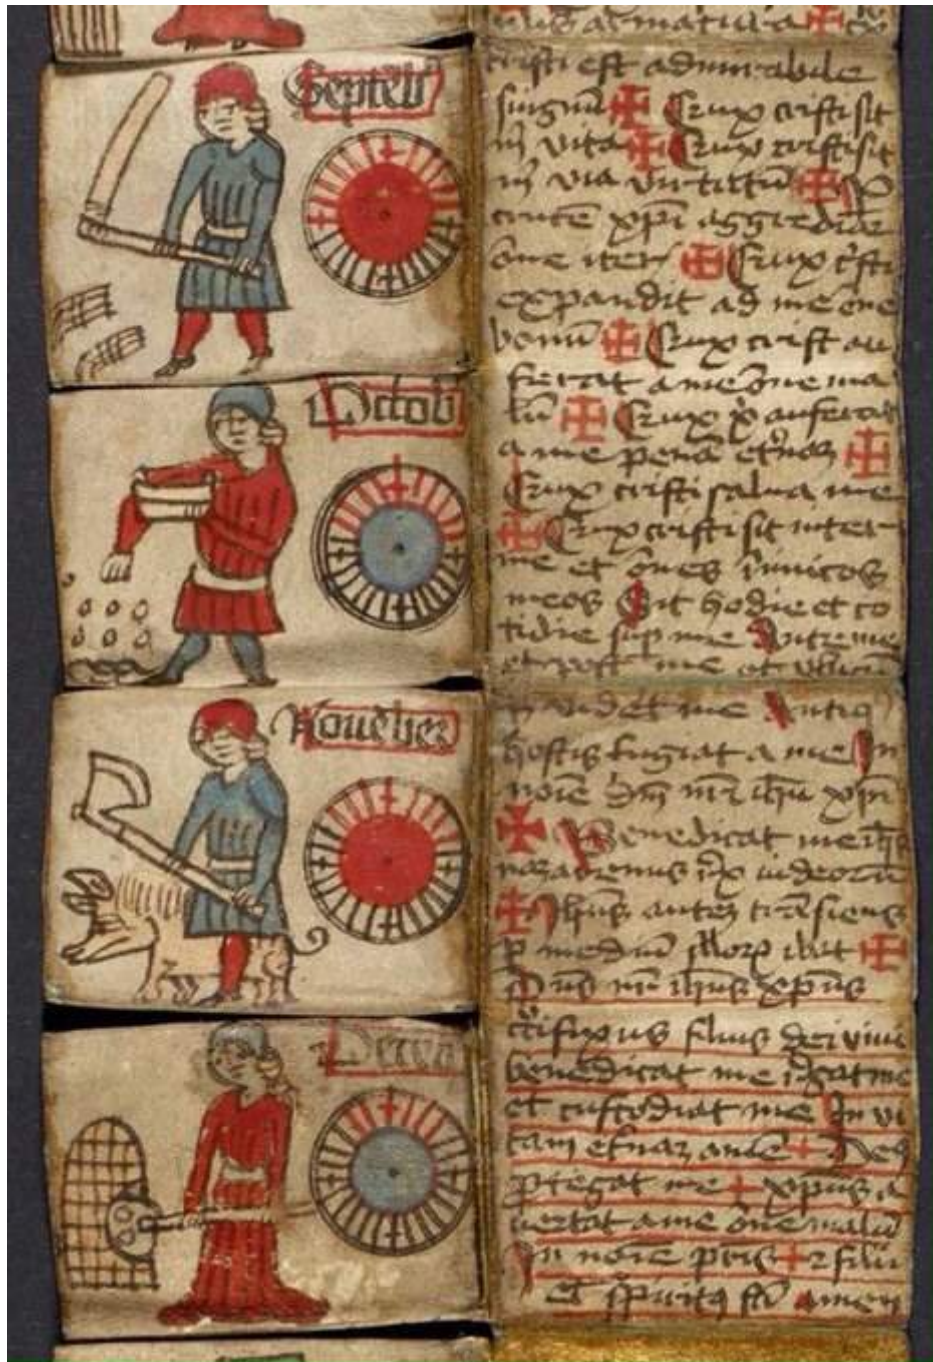 Septeb
Octob
Noueber
Deceb
cristi est admirabile
singnu ✠ Crux cristi sit
m vita ✠ Crux cristi sit
m via virtutu ✠ p
crucē xpi aggrediar
ōne iter ✠ Crux cristi
expandit ad me ōne
bonū ✠ Crux crist au
ferat a me ōne ma
lū ✠ Crux x auferat
a me penā eternā ✠
Crux cristi salua me
✠ Crux cristi sit inter
me et ōnes inimicos
meos Sit hodie et co
tidie sup me Antre me
et post me et
me Antiq
hostis fugiat a me In
noīe dni nri ihu xpi
✠ Benedicat me ihs
nazarenus rex iudeorū
✠ Ihus autez transiens
p mediū illorz ibat ✠
Dns nr ihus xpus
crifixus filius dei viui
benedicat me regat me
et custodiat me In vi
tam eternaz amē + Deus
ptegat me + xpus a
uertat a me ōne malū
In noīe pris + z filii
et spiritus sci amen